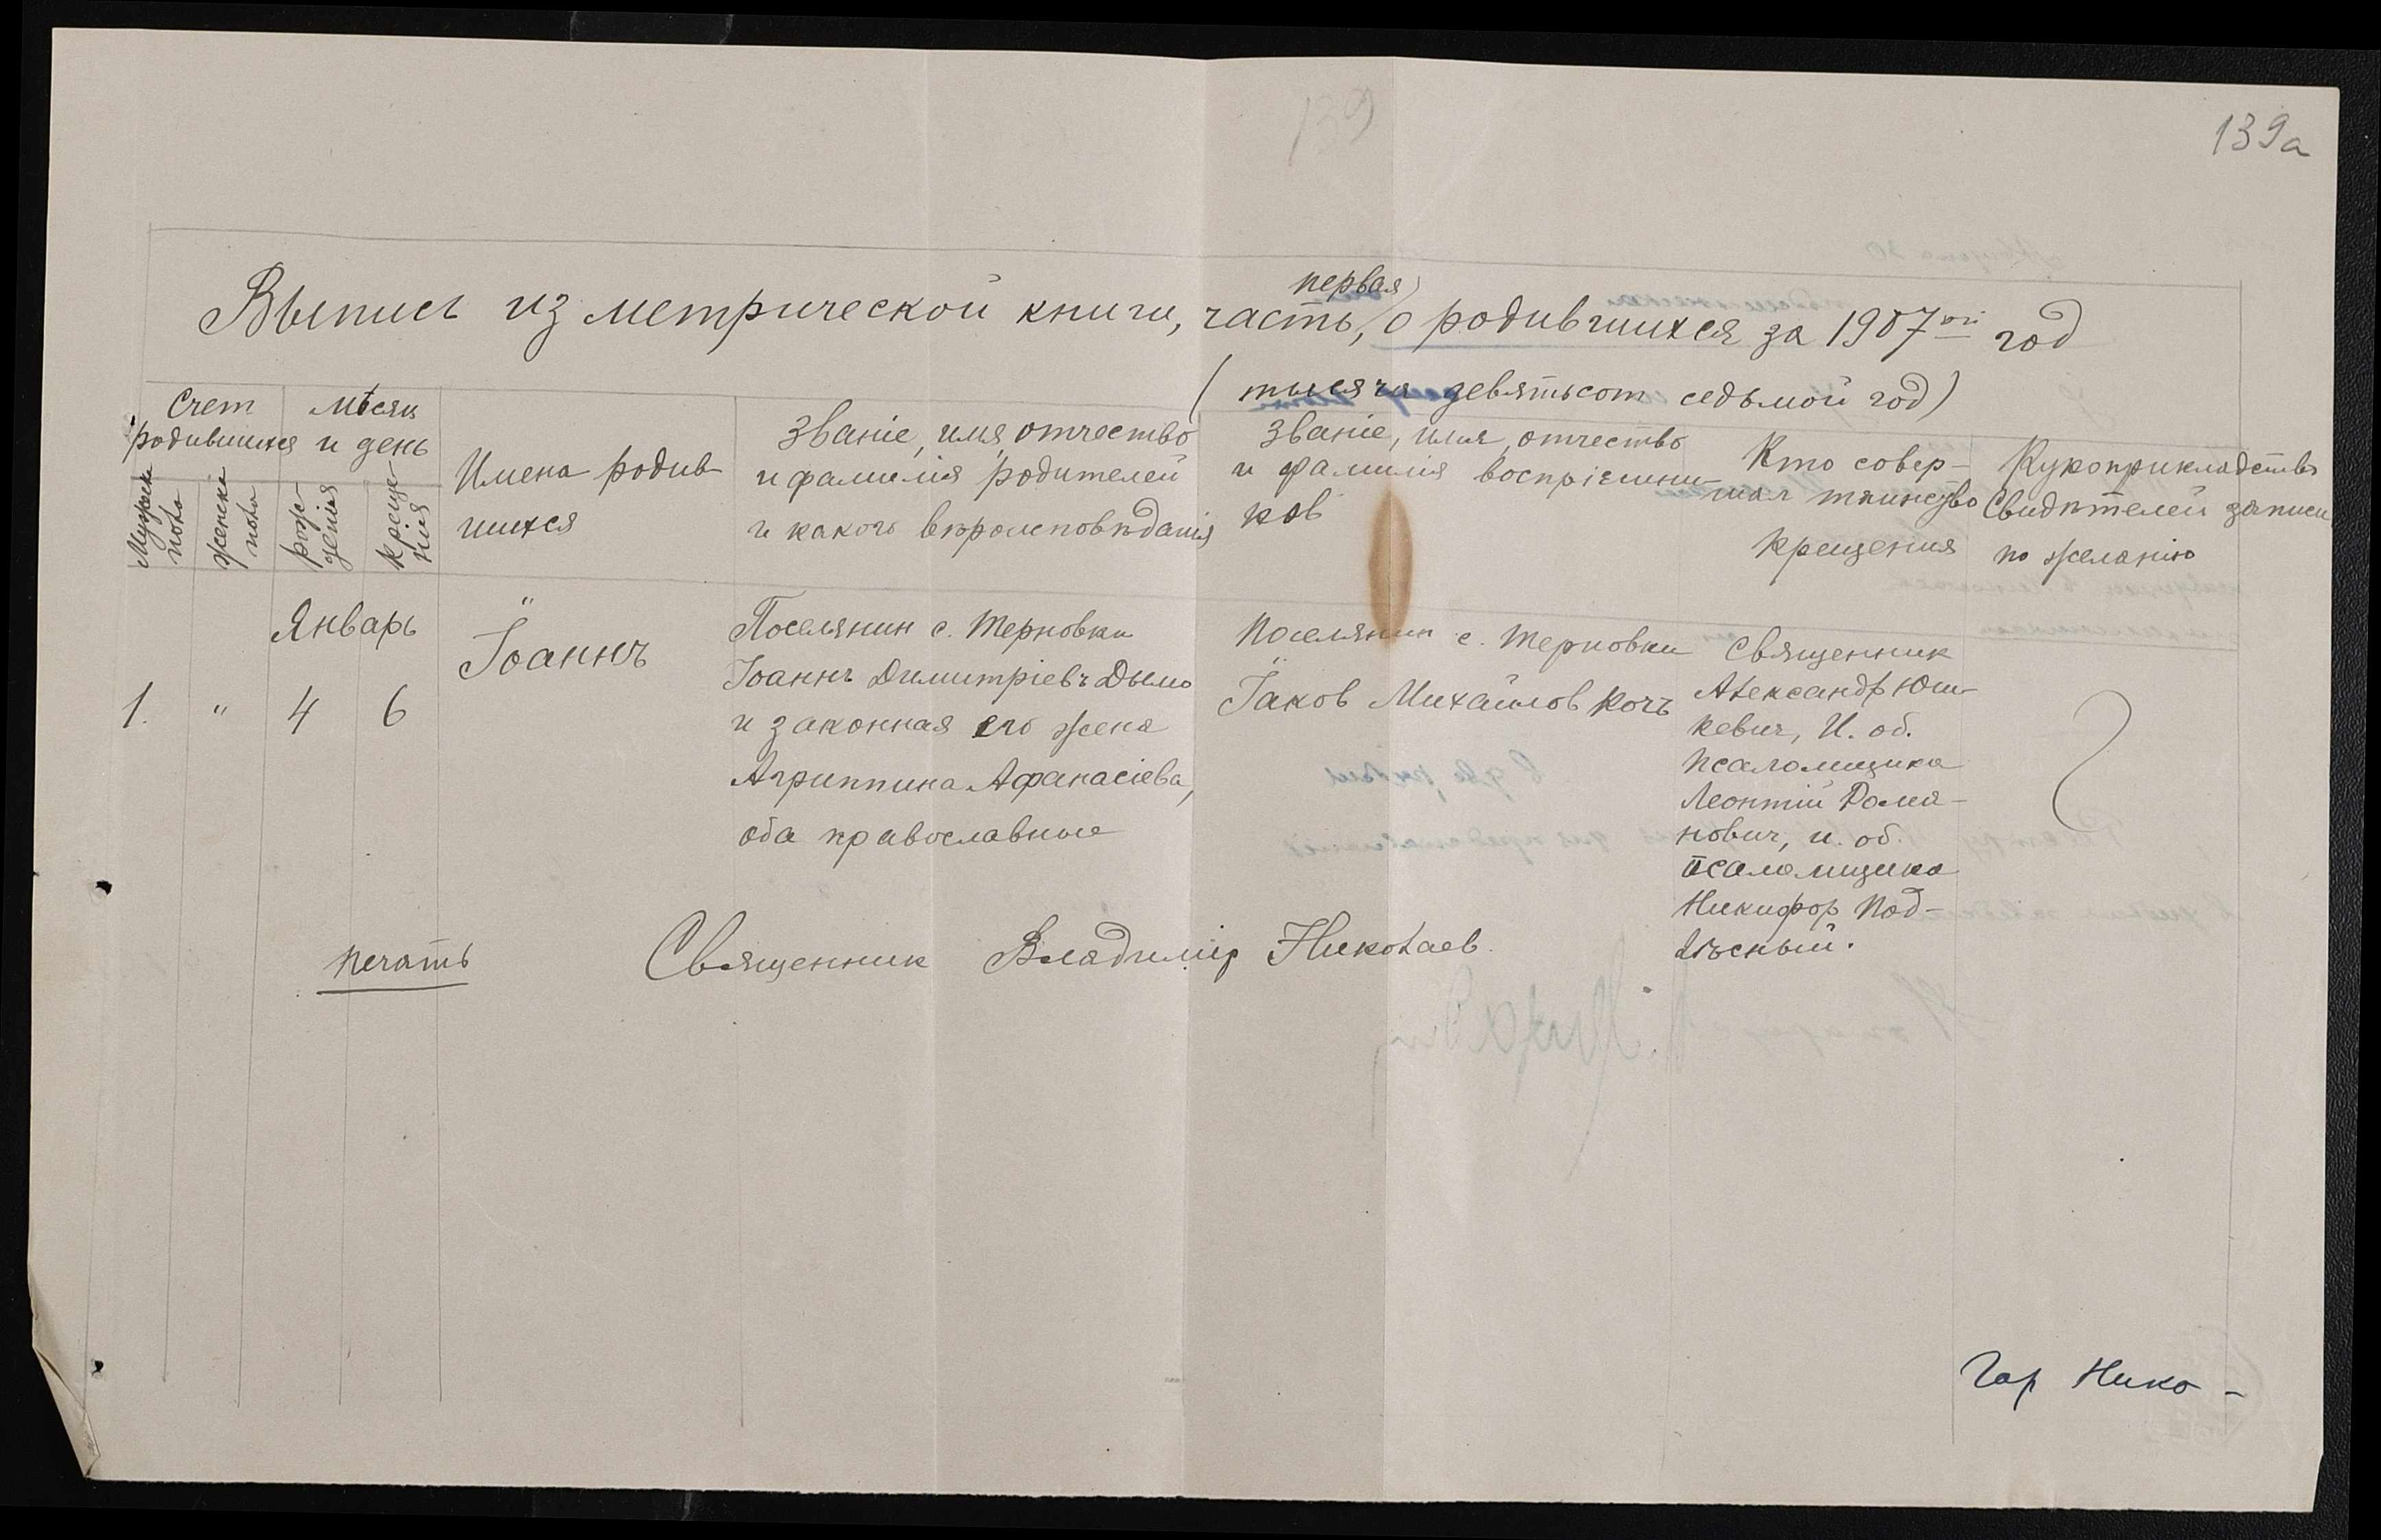 139
139а
Выпись из метрической книги, часть первая, о родившихся за 1907ой год
(тысяча девятьсот седьмой год)
Счет родившихся
Мужска пола
женска пола
Мѣсяц и день
рождения
крещения
Имена родив-
шихся
Званіе, имя, отчество
и фамилія родителей
и какого вѣроисповѣданія
Званіе, имя, отчество
и фамилія воспріемни-
ков
Кто совер-
шал таинство
крещения
Рукоприкладство
Свидѣтелей записи
по желанію
1.
"
Январь
4
6
Іоаннъ
Поселянин с. Терновки
Іоаннъ Димитріевъ Дымо
и законная его жена
Агриппина Афанасіева,
оба православные
Поселянин с. Терновки
Іаков Михайлов Кочъ
Священник
Александр Юш-
кевич, И. об.
псаломщика
Леонтій Рома-
нович, и. об.
псаломщика
Никифор Под-
лѣсный.
печать
Священник Владимір Николаев.
Гор Нико-